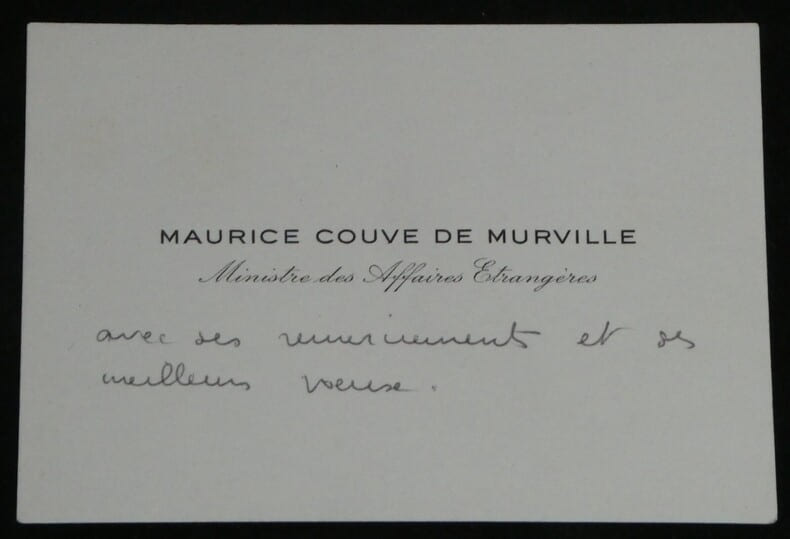 MAURICE COUVE DE MURVILLE
Ministre des Affaires Etrangères
avec ses remerciements et ses
meilleurs voeux.